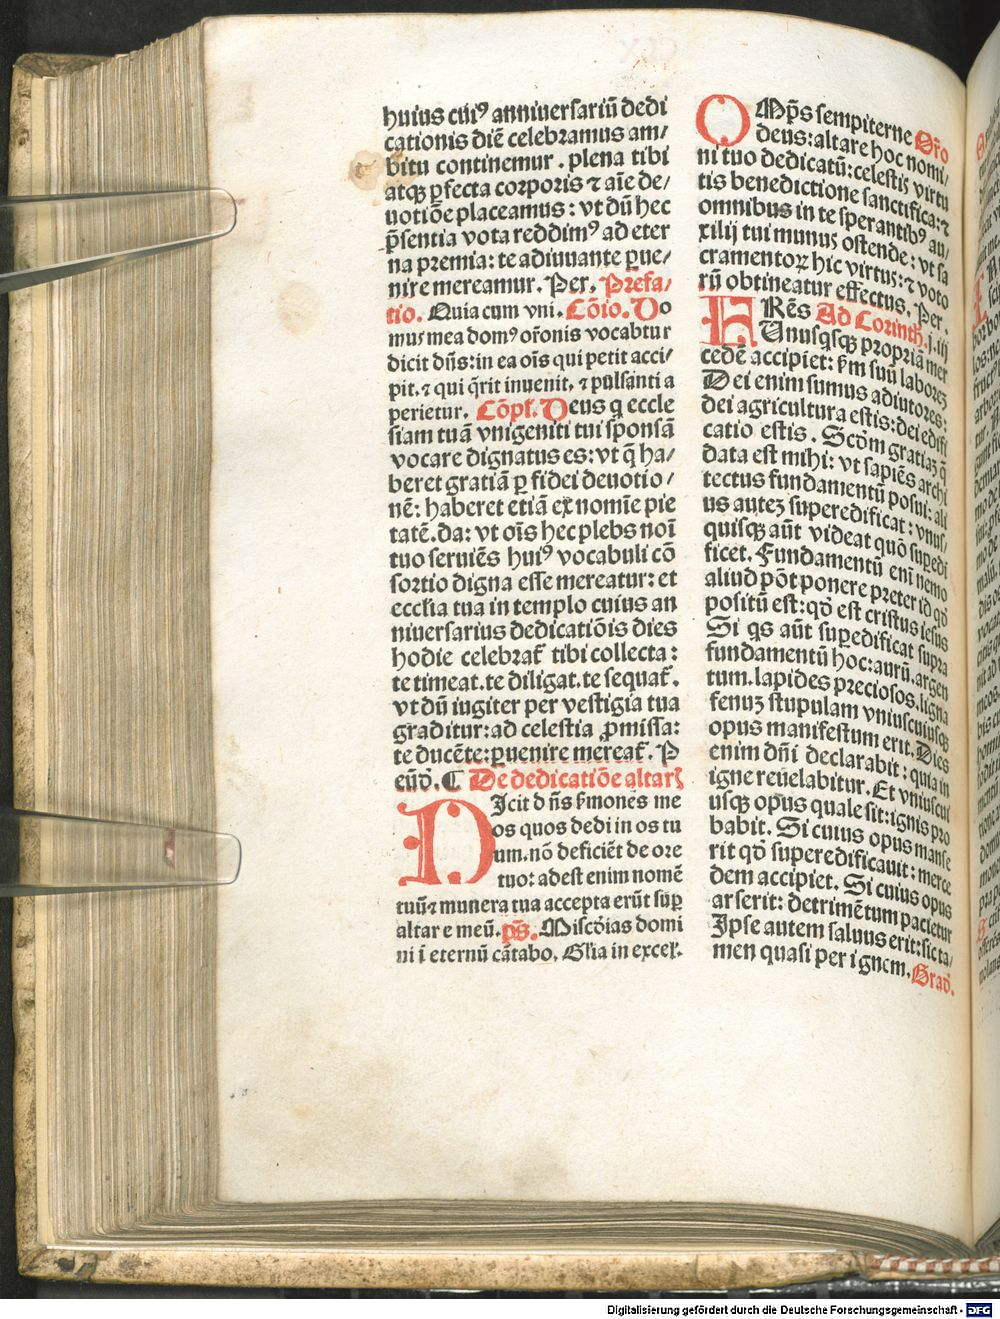 huius cuiꝰ anniuersariū dedi
cationis diē celebramus am/
bitu continemur . plena tibi
atqꝫ ꝑfecta corporis ⁊ aīe de/
uotiōe placeamus : vt dū hec
p̄sentia vota reddimꝰ ad eter
na premia: te adiuuante ꝑue/
nire mereamur. Per. Prefa/
tio. Quia cum vni. Cōio. Do
mus mea domꝰ or̄onis vocabtur
dicit dn̄s: in ea oīs qui petit acci/
pit. ⁊ qui q̄rit inuenit. ⁊ pulsanti a
perietur. Cōpl'. Deus q eccle
siam tuā vnigeniti tui sponsā
vocare dignatus es: vt q̄ ha/
beret gratiā ꝑ fidei deuotio/
nē: haberet etiā ex nomīe pie
tatē. da: vt oīs hec plebs noī
tuo seruiēs huiꝰ vocabuli cō
sortio digna esse mereatur: et
eccl'ia tua in templo cuius an
niuersarius dedicatiōis dies
hodie celebrat̄ tibi collecta:
te timeat. te diligat. te sequat̄.
vt dū iugiter per vestigia tua
graditur: ad celestia ꝓmissa:
te ducēte: ꝑuenire mereat̄. P
eūd'. C De dedicatiōe altarꝭ
Dicit dn̄s ẜmones me
os quos dedi in os tu
um. nō deficiēt de ore
tuo: adest enim nomē
tuū ⁊ munera tua accepta erūt suꝑ
altare meū. ps̄. Misc'dias domi
ni ī eternū cātabo. Gl'ia in excel'.
OMp̄s sempiterne Or̄o
deus: altare hoc nomi/
ni tuo dedicatū: celestis virtu
tis benedictione sanctifica: ⁊
omnibus in te sperantibꝰ au/
xilij tui munus ostende: vt sa
cramentoꝝ hic virtus: ⁊ voto
rū obtineatur effectus. Per.
FRēs Ad Corinth. j. iij
Unusqsqꝫ propriā mer
cedē accipiet: ẜm suū laborēꝫ
Dei enim sumus adiutores:
dei agricultura estis: dei edifi
catio estis. Scd'm gratiaꝫ q̄
data est mihi: vt sapiēs archi
tectus fundamentū posui: ali
us auteꝫ superedificat: vnus/
quisqꝫ aūt videat quō suꝑedi
ficet. Fundamentū eni nemo
aliud pōt ponere preter id qd'
positū est: qd' est cristus iesus
Si qs aūt suꝑedificat supra
fundamentū hoc: aurū. argen
tum. lapides preciosos. ligna
fenuꝫ stupulam vniuscuiusqꝫ
opus manifestum erit. Dies
enim dn̄i declarabit: quia in
igne reuelabitur. Et vniuscui
usqꝫ opus quale sit: ignis pro
babit. Si cuius opus manse
rit qd' superedificauit: merce
dem accipiet. Si cuius opus
arserit: detrimētum pacietur
Ipse autem saluus erit: sic ta/
men quasi per ignem. Grad'.
Digitalisierung gefördert durch die Deutsche Forschungsgemeinschaft - DFG